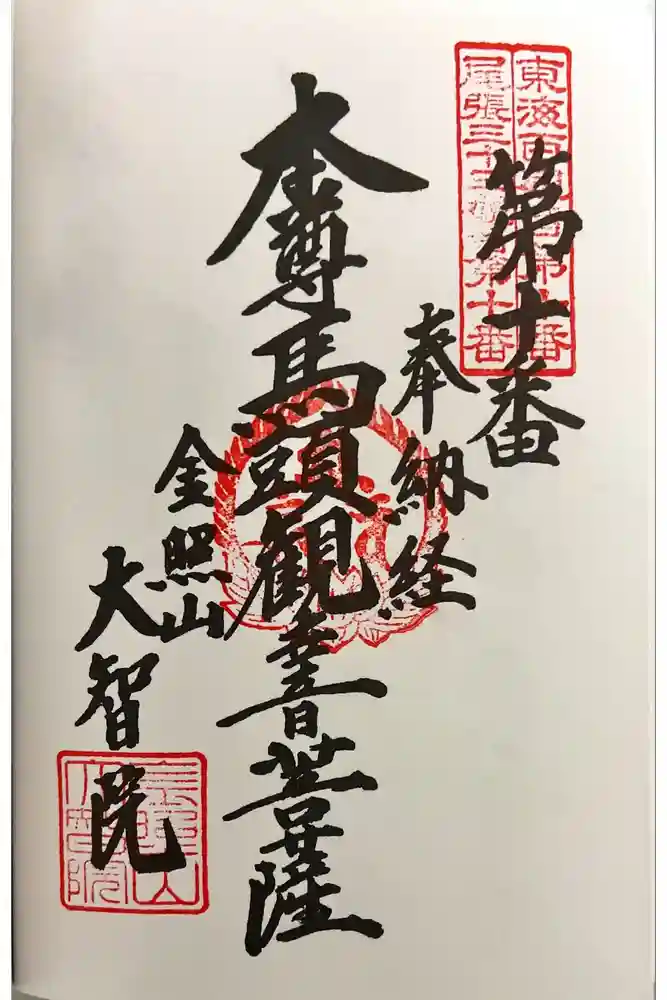 東海百
番
尾張三十三
第十番
第十番
奉納経
本尊馬頭観音菩薩
金照山
大智院
金照山
大智院